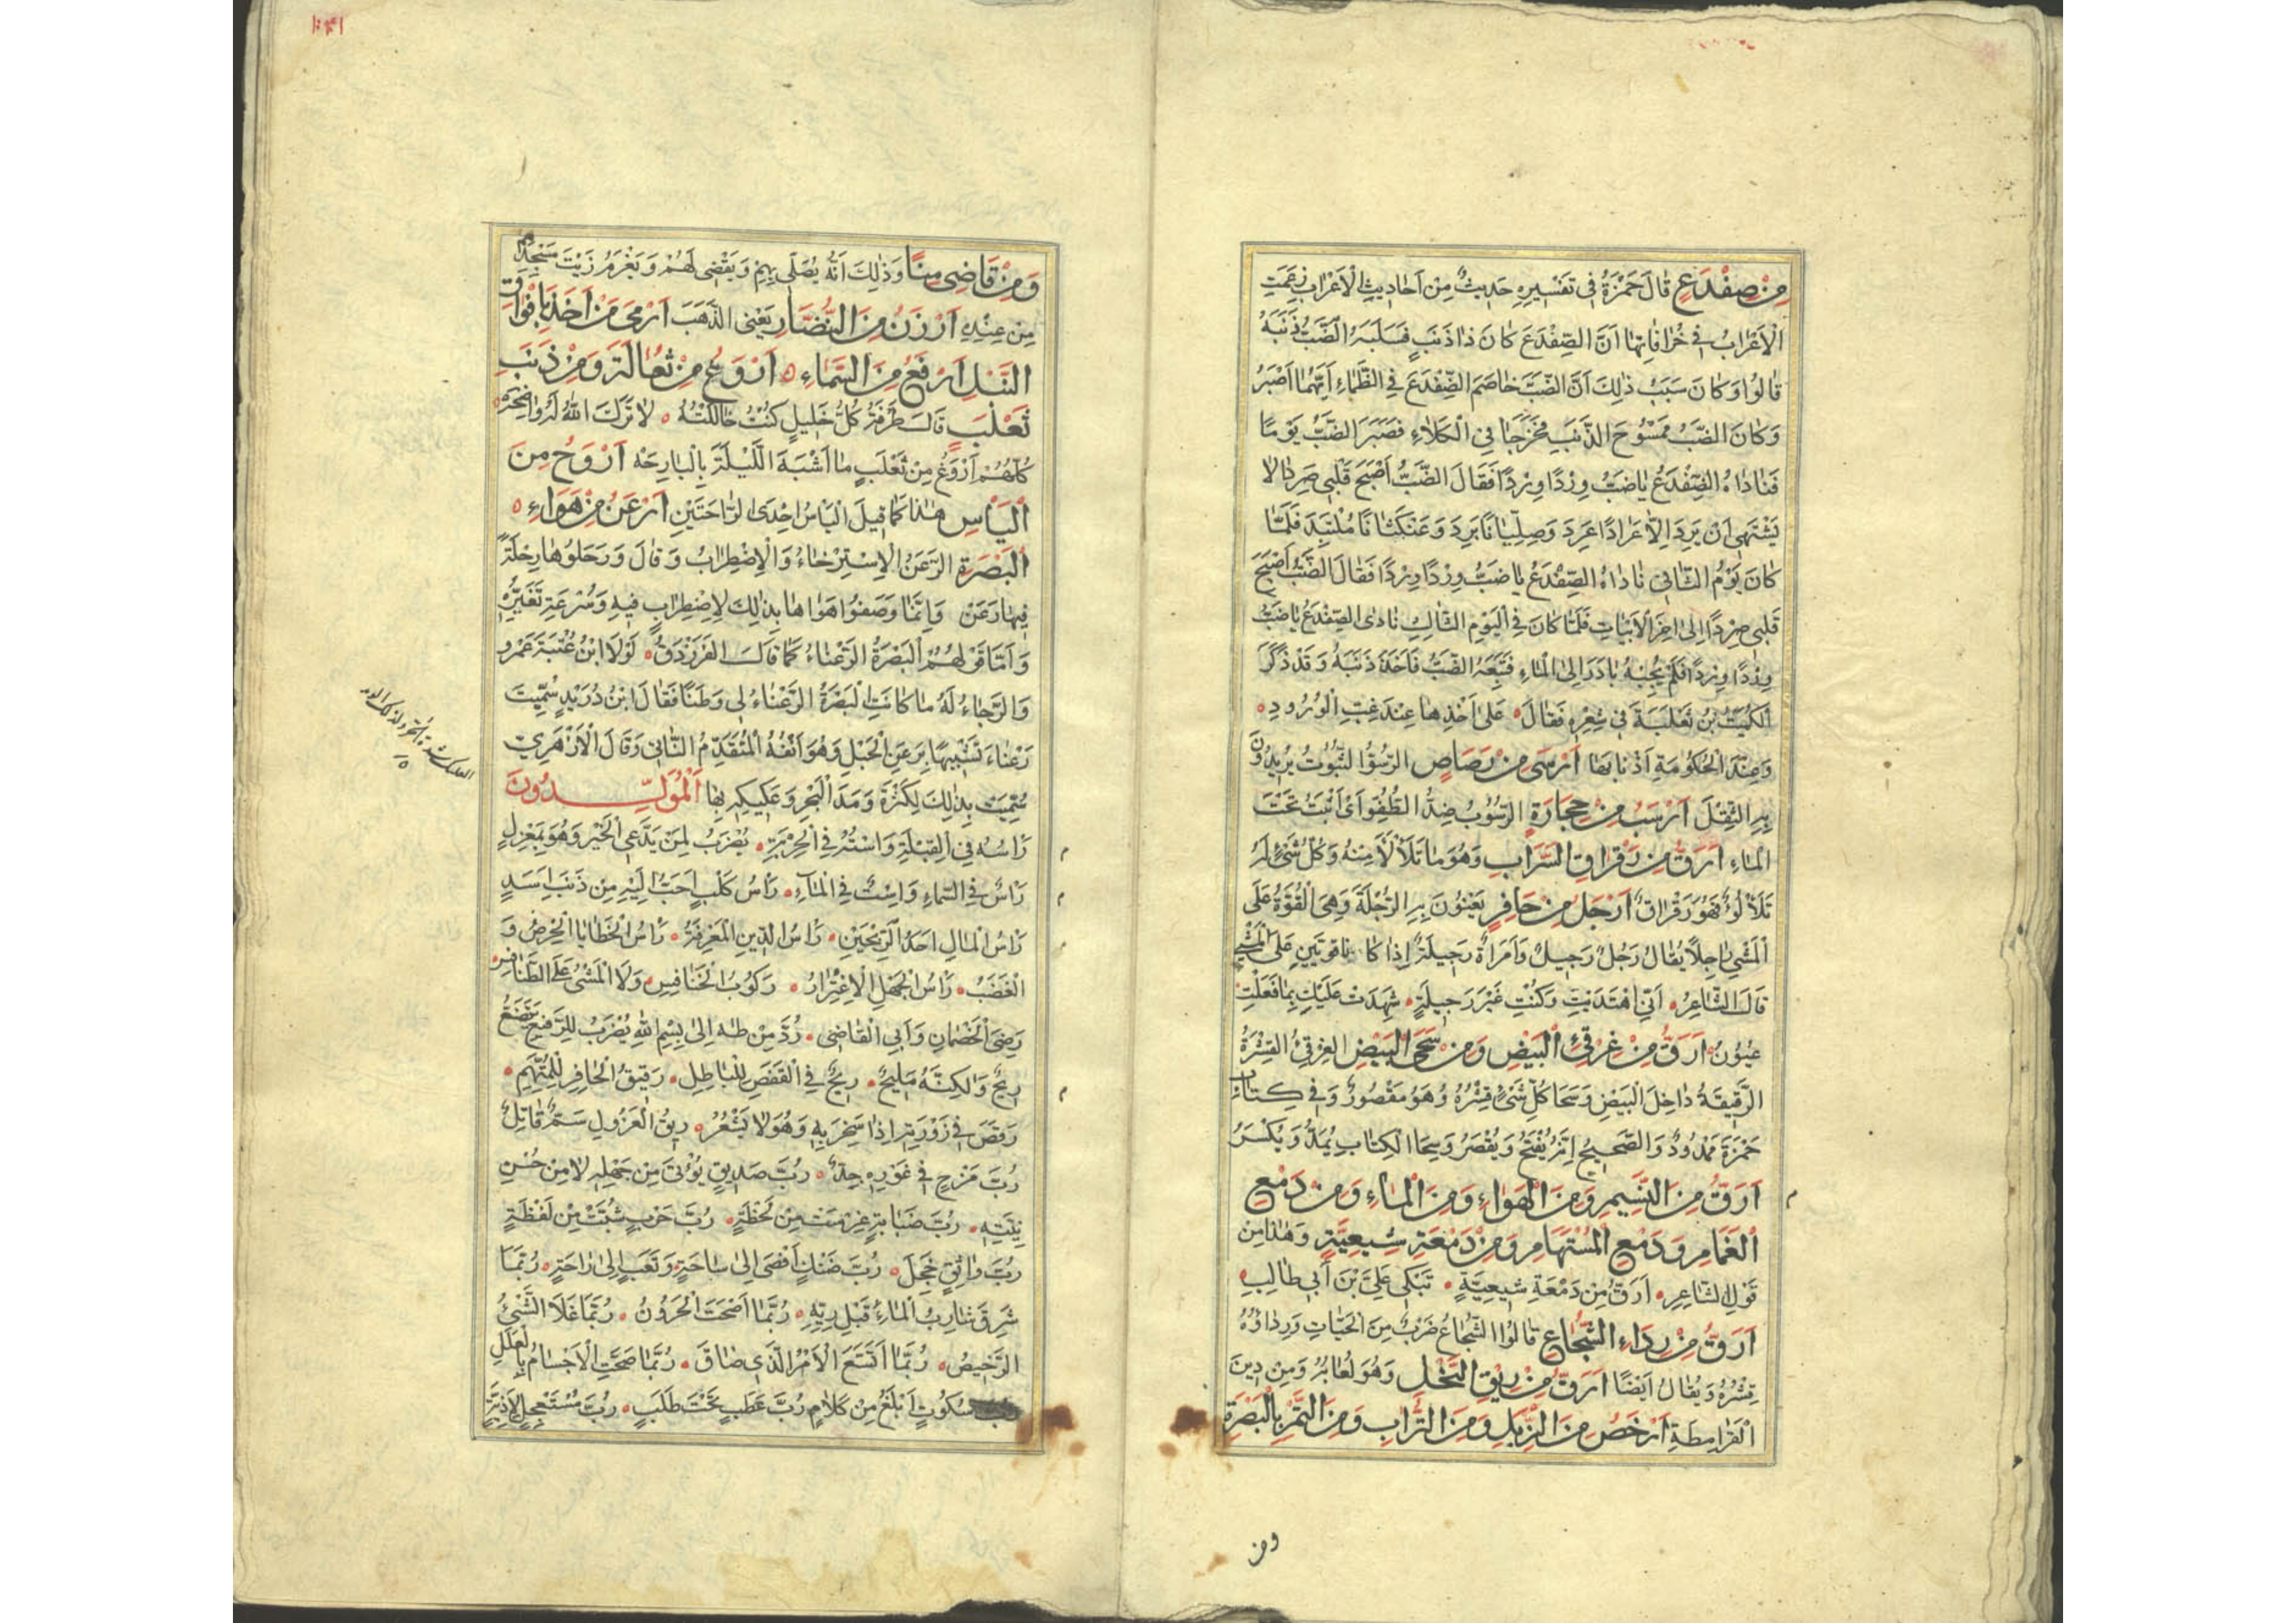 مِنْ ضِفْدَعٍ قَالَ حَمْزَةُ فِي تَفْسِيرِهِ حَدِيثٌ مِنْ اَحَادِيثِ الْاَعْرَابِ زَعَمَتِ
الْاَعْرَابُ فِي خُرَافَاتِهَا اَنَّ الضِّفْدَعَ كَانَ ذَا ذَنَبٍ فَسَلَبَهُ الضَّبُّ ذَنَبَهُ
قَالُوا وَكَانَ سَبَبُ ذٰلِكَ اَنَّ الضَّبَّ خَاصَمَ الضِّفْدَعَ فِي الظَّمَاءِ اَيُّهُمَا اَصْبَرُ
وَكَانَ الضَّبُّ مَمْسُوحَ الذَّنَبِ فَخَرَجَا فِي الْكَلَاءِ فَصَبَرَ الضَّبُّ يَوْمًا
فَنَادَاهُ الضِّفْدَعُ يَاضَبُّ وِرْدًا وِرْدًا فَقَالَ الضَّبُّ اَصْبَحَ قَلْبِي صَرِدَا لَا
يَشْتَهِي اَنْ يَرِدَ اِلَّا عَرَادًا عَرِدَ وَصِلِّيَانًا بَرِدَ وَعَنْكَثَانًا مُلْتَبِدَ فَلَمَّا
كَانَ يَوْمُ الثَّانِي نَادَاهُ الضِّفْدَعُ يَا ضَبُّ وِرْدًا وِرْدًا فَقَالَ الضَّبُّ اَصْبَحَ
قَلْبِي صَرِدًا اِلَى اٰخِرِ الْاَبْيَاتِ فَلَمَّا كَانَ فِي الْيَوْمِ الثَّالِثِ نَادَى الضِّفْدَعُ يَاضَبُّ
وِرْدًا وِرْدًا فَلَمْ يُجِبْهُ بَادَرَ اِلَى الْمَاءِ فَتَبِعَهُ الضَّبُّ فَاَخَذَ ذَنَبَهُ وَقَدْ ذَكَرَ
الْكُمَيْتُ بْنُ ثَعْلَبَةَ فِي شِعْرِهِ فَقَالَ عَلَى اَخْذِهَا عِنْدَ غِبِّ الْوُرُودِ
وَعِنْدَ الْحُكُومَةِ اَذْنَابَهَا اَرْسَى مِنْ رَصَاصٍ الرُّسُوُّ الثُّبُوتُ يُرِيدُونَ
بِهِ الثِّقْلَ اَرْسَبُ مِنْ حِجَارَةٍ الرُّسُوبُ ضِدُّ الطُّفُوِّ اَيْ اَثْبَتُ تَحْتَ
الْمَاءِ اَرَقُّ مِنْ رَقْرَاقِ السَّرَابِ وَهُوَ مَا تَلَأْلَأَ مِنْهُ وَكُلُّ شَيْءٍ لَهُ
تَلَأْلُؤٌ فَهُوَ رَقْرَاقٌ اَرْجَلُ مِنْ حَافِرٍ يَعْنُونَ بِهِ الرُّجْلَةَ وَهِيَ الْقُوَّةُ عَلَى
الْمَشْيِ رَاجِلًا يُقَالُ رَجُلٌ رَجِيلٌ وَامْرَاَةٌ رَجِيلَةٌ اِذَا كَا نَا قَوِيَّيْنِ عَلَى الْمَشْيِ
قَالَ الشَّاعِرُ اَنّٰى اهْتَدَيْتِ وَكُنْتِ غَيْرَ رَجِيلَةٍ شَهِدَتْ عَلَيْكِ بِمَا فَعَلْتِ
عُيُونُ اَرَقُّ مِنْ غِرْقِئِ الْبَيْضِ وَمِنْ سَحَى الْبَيْضِ الْغِرْقِئُ الْقِشْرَةُ
الرَّقِيقَةُ دَاخِلَ الْبَيْضِ وَسَحَا كُلِّ شَيْءٍ قِشْرُهُ وَهُوَ مَقْصُورٌ وَفِي كِتَابِ
حَمْزَةَ مَمْدُودٌ وَالصَّحِيحُ اِنَّهُ يُفْتَحُ وَيُقْصَرُ وَسِحَاءُ الْكِتَابِ يُمَدُّ وَيُكْسَرُ
اَرَقُّ مِنَ النَّسِيمِ وَمِنَ الْهَوَاءِ وَمِنَ الْمَاءِ وَمِنْ دَمْعِ
الْغَمَامِ وَدَمْعِ الْمُسْتَهَامِ وَمِنْ دَمْعَةِ شِيعِيَّةٍ وَهٰذَا مِنْ
قَوْلِ الشَّاعِرِ اَرَقُّ مِنْ دَمْعَةِ شِيعِيَّةٍ تَبْكِي عَلِيَّ بْنَ اَبِي طَالِبٍ
اَرَقُّ مِنْ رِدَاءِ الشُّجَاعِ قَالُوا الشُّجَاعُ ضَرْبٌ مِنَ الْحَيَّاتِ وَرِدَاؤُهُ
قِشْرُهُ وَيُقَالُ اَيْضًا اَرَقُّ مِنْ رِيْقِ النَّحْلِ وَهُوَ لُعَابُهُ وَمِنْ دِينِ
الْقَرَامِطَةِ اَرْخَصُ مِنَ الزِّبْلِ وَمِنَ التُّرَابِ وَمِنَ التَّمْرِ بِالْبَصْرَةِ
ومن
وَمِنْ قَاضِي مِنًا وَذٰلِكَ اَنَّهُ يُصَلِّي بِهِمْ وَيَقْضِي لَهُمْ وَيَغْرَمُ زَيْتَ مَسْجِدِهِمْ
مِنْ عِنْدِهِ اَرْزَنُ مِنَ النُّضَارِ يَعْنِي الذَّهَبَ اَرْمَى مَنْ اَخَذَ بِاَفْوَاقِ
النَّبْلِ اَرْفَعُ مِنَ السَّمَاءِ اَرْوَغُ مِنْ ثُعَالَةَ وَمِنْ ذَنَبِ
ثَعْلَبٍ قَالَ طَرَفَةُ كُلُّ خَلِيلٍ كُنْتُ خَالَلْتُهُ لَا تَرَكَ اللّٰهُ لَهُ وَاضِحَهْ
كُلُّهُمْ اَرْوَغُ مِنْ ثَعْلَبٍ مَا اَشْبَهَ اللَّيْلَةَ بِالْبَارِحَهْ اَرْوَحُ مِنَ
الْيَأْسِ هٰذَا كَمَا قِيلَ الْيَأْسُ اِحْدَى الرَّاحَتَيْنِ اَرْعَنُ مِنْ هَوَاءِ
الْبَصْرَةِ الرَّعَنُ الْاِسْتِرْخَاءُ وَالْاِضْطِرَابُ وَقَالَ وَرَحَلُوهَا رِحْلَةً
فِيهَا رَعَنْ وَاِنَّمَا وَصَفُوا هَوَاهَا بِذٰلِكَ لِاِضْطِرَابٍ فِيهِ وَسُرْعَةِ تَغَيُّرِهِ
وَاَمَّا قَوْلُهُمُ الْبَصْرَةُ الرَّعْنَاءُ كَمَا قَالَ الْفَرَزْدَقُ لَوْلَا ابْنُ عُتْبَةَ عَمْرُو
وَالرَّجَاءُ لَهُ مَا كَانَتِ الْبَصْرَةُ الرَّعْنَاءُ لِي وَطَنًا فَقَالَ ابْنُ دُرَيْدٍ سُمِّيَتْ
رَعْنَاءَ تَشْبِيهًا بِرَعَنِ الْجَبَلِ وَهُوَ اَنْفُهُ الْمُتَقَدِّمُ النَّاتِئُ وَقَالَ الْاَزْهَرِيُّ
سُمِّيَتْ بِذٰلِكَ لِكَثْرَةِ وَمَدِ الْبَحْرِ وَعَكِيكِهِ بِهَا اَلْمُوَلَّدُونَ
رَأْسُهُ فِي الْقِبْلَةِ وَاسْتُهُ فِي الْخِرْبَةِ يُضْرَبُ لِمَنْ يَدَّعِي الْخَيْرَ وَهُوَ بِمَعْزِلٍ
رَأْسٌ فِي السَّمَاءِ وَاسْتٌ فِي الْمَاءِ رَأْسُ كَلْبٍ اَحَبُّ اِلَيْهِ مِنْ ذَنَبِ اَسَدٍ
رَأْسُ الْمَالِ اَحَدُ الرِّبْحَيْنِ رَأْسُ الدِّينِ الْمَعْرِفَةُ رَأْسُ الْخَطَايَا الْحِرْصُ وَ
الْغَضَبُ رَأْسُ الْجَهْلِ الْاِغْتِرَارُ رُكُوبُ الْخَنَافِسِ وَلَا الْمَشْيُ عَلَى الطَّنَافِسِ
رَضِيَ الْخَصْمَانِ وَاَبَى الْقَاضِي رُدَّ مِنْ طٰهٰ اِلَى بِسْمِ اللّٰهِ يُضْرَبُ لِلرَّفِيعِ يَتَّضِعُ
رِيحٌ وَلٰكِنَّهُ مَلِيحٌ رِيحٌ فِي الْقَفَصِ لِلْبَاطِلِ رَقِيقُ الْحَافِرِ لِلْمُتَّهَمِ
رَقَصَ فِي زَوْرَقِهِ اِذَا سَخِرَ بِهِ وَهُوَ لَا يَشْعُرُ رِيقُ الْعَزُولِ سَمٌّ قَاتِلٌ
رُبَّ مَزْحٍ فِي غَوْرِهِ جِدٌّ رُبَّ صَدِيقٍ يُؤْتٰى مِنْ جَهْلِهِ لَا مِنْ حُسْنِ
نِيَّتِهِ رُبَّ صَبَابَةٍ غُرِسَتْ مِنْ لَحْظَةٍ رُبَّ حَرْبٍ شُبَّتْ مِنْ لَفْظَةٍ
رُبَّ وَاثِقٍ خَجِلَ رُبَّ ضَنْكٍ اَفْضٰى اِلَى سَاحَةٍ وَتَعَبٍ اِلَى رَاحَةٍ رُبَّمَا
شَرِقَ شَارِبُ الْمَاءِ قَبْلَ رِيِّهِ رُبَّمَا اَصْحَبَ الْحَرُونُ رُبَّمَا غَلَا الشَّيْءُ
الرَّخِيصُ رُبَّمَا اتَّسَعَ الْاَمْرُ الَّذِي ضَاقَ رُبَّمَا صَحَّتِ الْاَجْسَامُ بِالْعِلَلِ
رُبَّ سُكُوتٍ اَبْلَغُ مِنْ كَلَامٍ رُبَّ عَطَبٍ تَحْتَ طَلَبٍ رُبَّ مُسْتَعْجِلٍ لِاَذِيَّةٍ